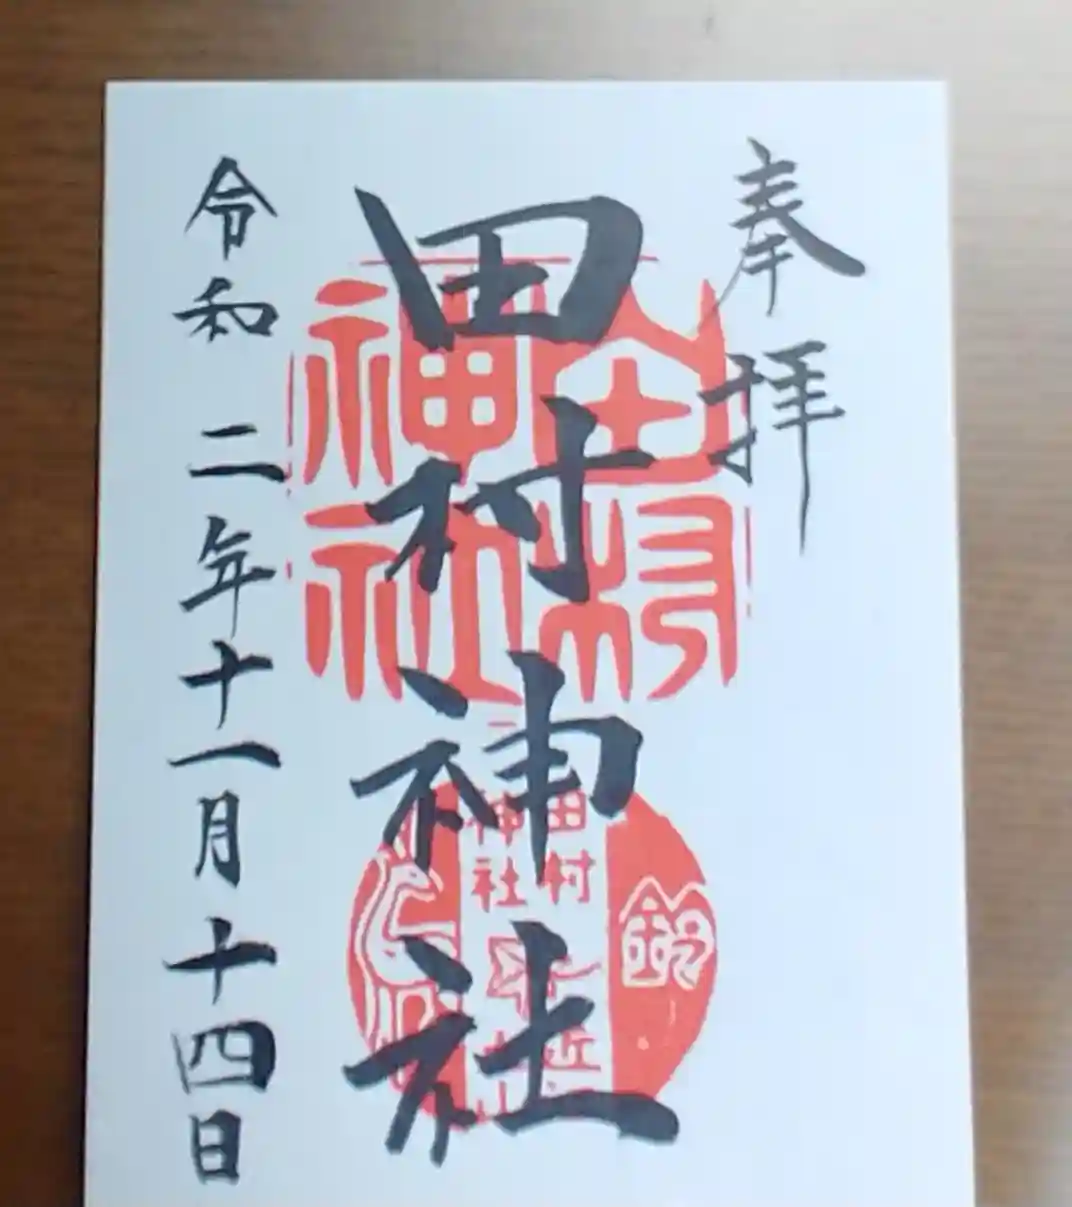 奉拝
田村神社
田村
神社
田村
神社
鈴
近
令和二年十一月十四日